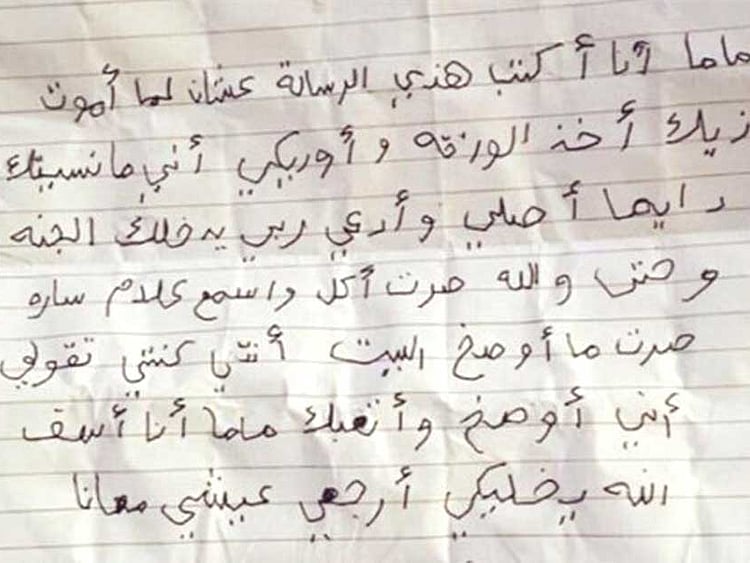 ماما أنا أكتب هذي الرسالة عشان لما أموت
زيك أخذ الورقه و أوريكي أني ما نسيتك
دايما أصلي و أدعي ربي يدخلك الجنه
و حتى والله صرت أكل و اسمع كلام ساره
صرت ما أوصخ البيت أنتي كنتي تقولي
أني أوصخ و أتعبك ماما أنا أسف
الله يخليكي أرجعي عيشي معانا